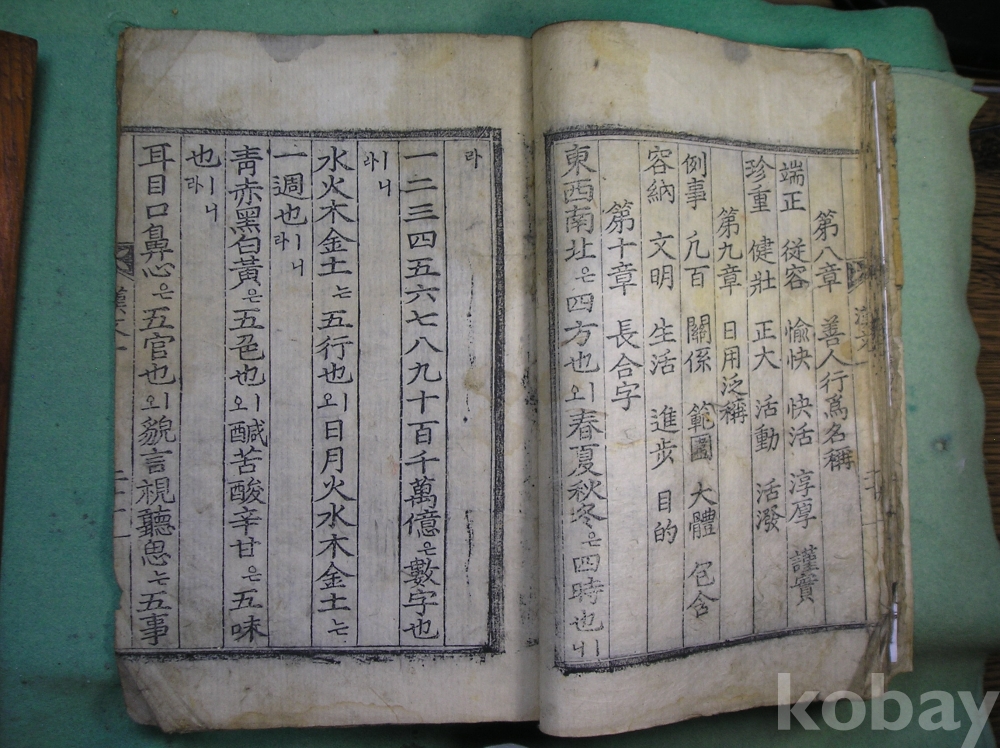 第八章 善人行爲名稱
端正 從容 愉快 快活 淳厚 謹實
珍重 健壯 正大 活動 活潑
第九章 日用泛稱
例事 凡百 關係 範圍 大體 包含
容納 文明 生活 進步 目的
第十章 長合字
東西南北은四方也오ㅣ春夏秋冬은四時也ㅣ니
라
一二三四五六七八九十百千萬億은數字也
ㅣ니라
水火木金土는五行也오ㅣ日月火水木金土는
一週也ㅣ니라
靑赤黑白黃은五色也오ㅣ醎苦酸辛甘은五味
也ㅣ니라
耳目口鼻心은五官也오ㅣ貌言視聽思는五事
漢文
kobay